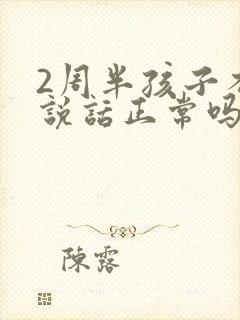 2周半孩子
說話正常吗
陳露